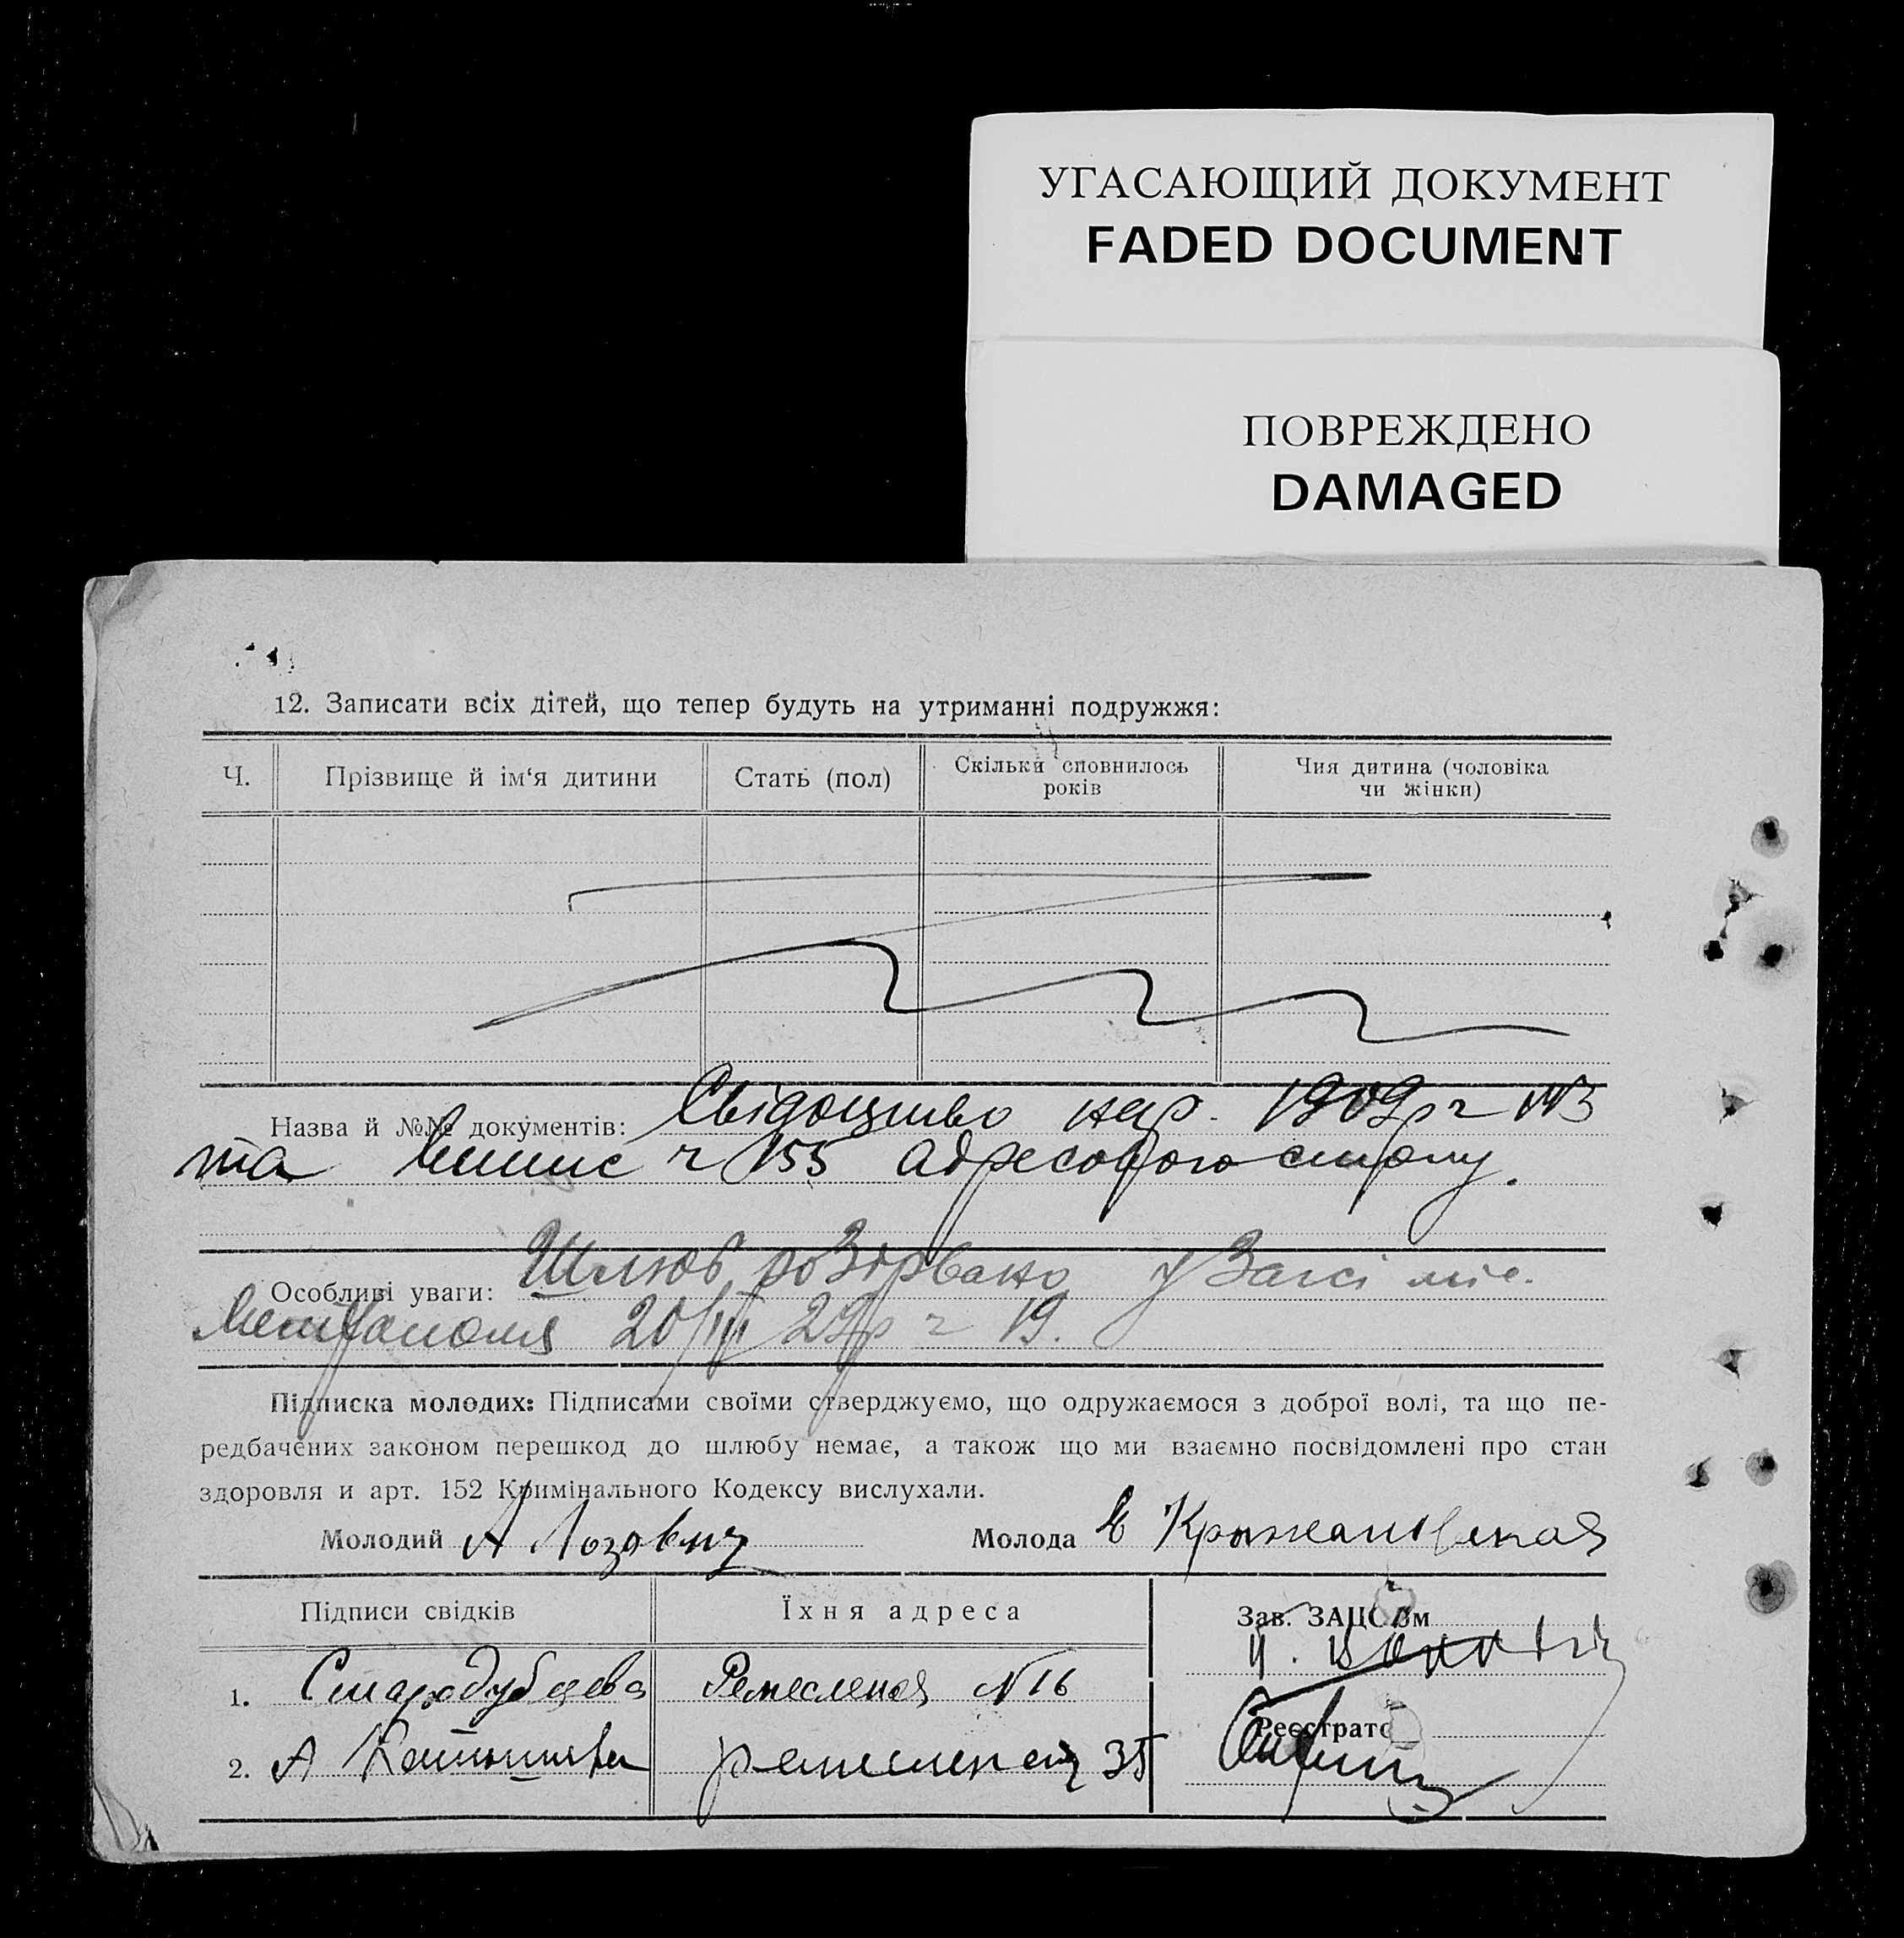 УГАСАЮЩИЙ ДОКУМЕНТ
FADED DOCUMENT
ПОВРЕЖДЕНО
DAMAGED
12. Записати всіх дітей, що тепер будуть на утриманні подружжя:
Ч.
Прізвище й ім‘я дитини
Стать (пол)
Скільки сповнилось
років
Чия дитина (чоловіка
чи жінки)
Назва й №№ документів: Свідоцтво нар. 1909р ч
та випис ч 155 адресового столу.
Особливі уваги: Шлюб розірвано у Загсі міс.
20/III 29р ч 19.
Підписка молодих: Підписами своїми стверджуємо, що одружаємося з доброї волі, та що пе-
редбачених законом перешкод до шлюбу немає, а також що ми взаємно посвідомлені про стан
здоровля и арт. 152 Кримінального Кодексу вислухали.
Молодий А Лозовну
Молода Е Крыжановская
Підписи свідків
Їхня адреса
Зав. ЗАЦСОм
1. Стародубцева
Ремесленая №16
Реєстрато
2. А
ремесленая 35